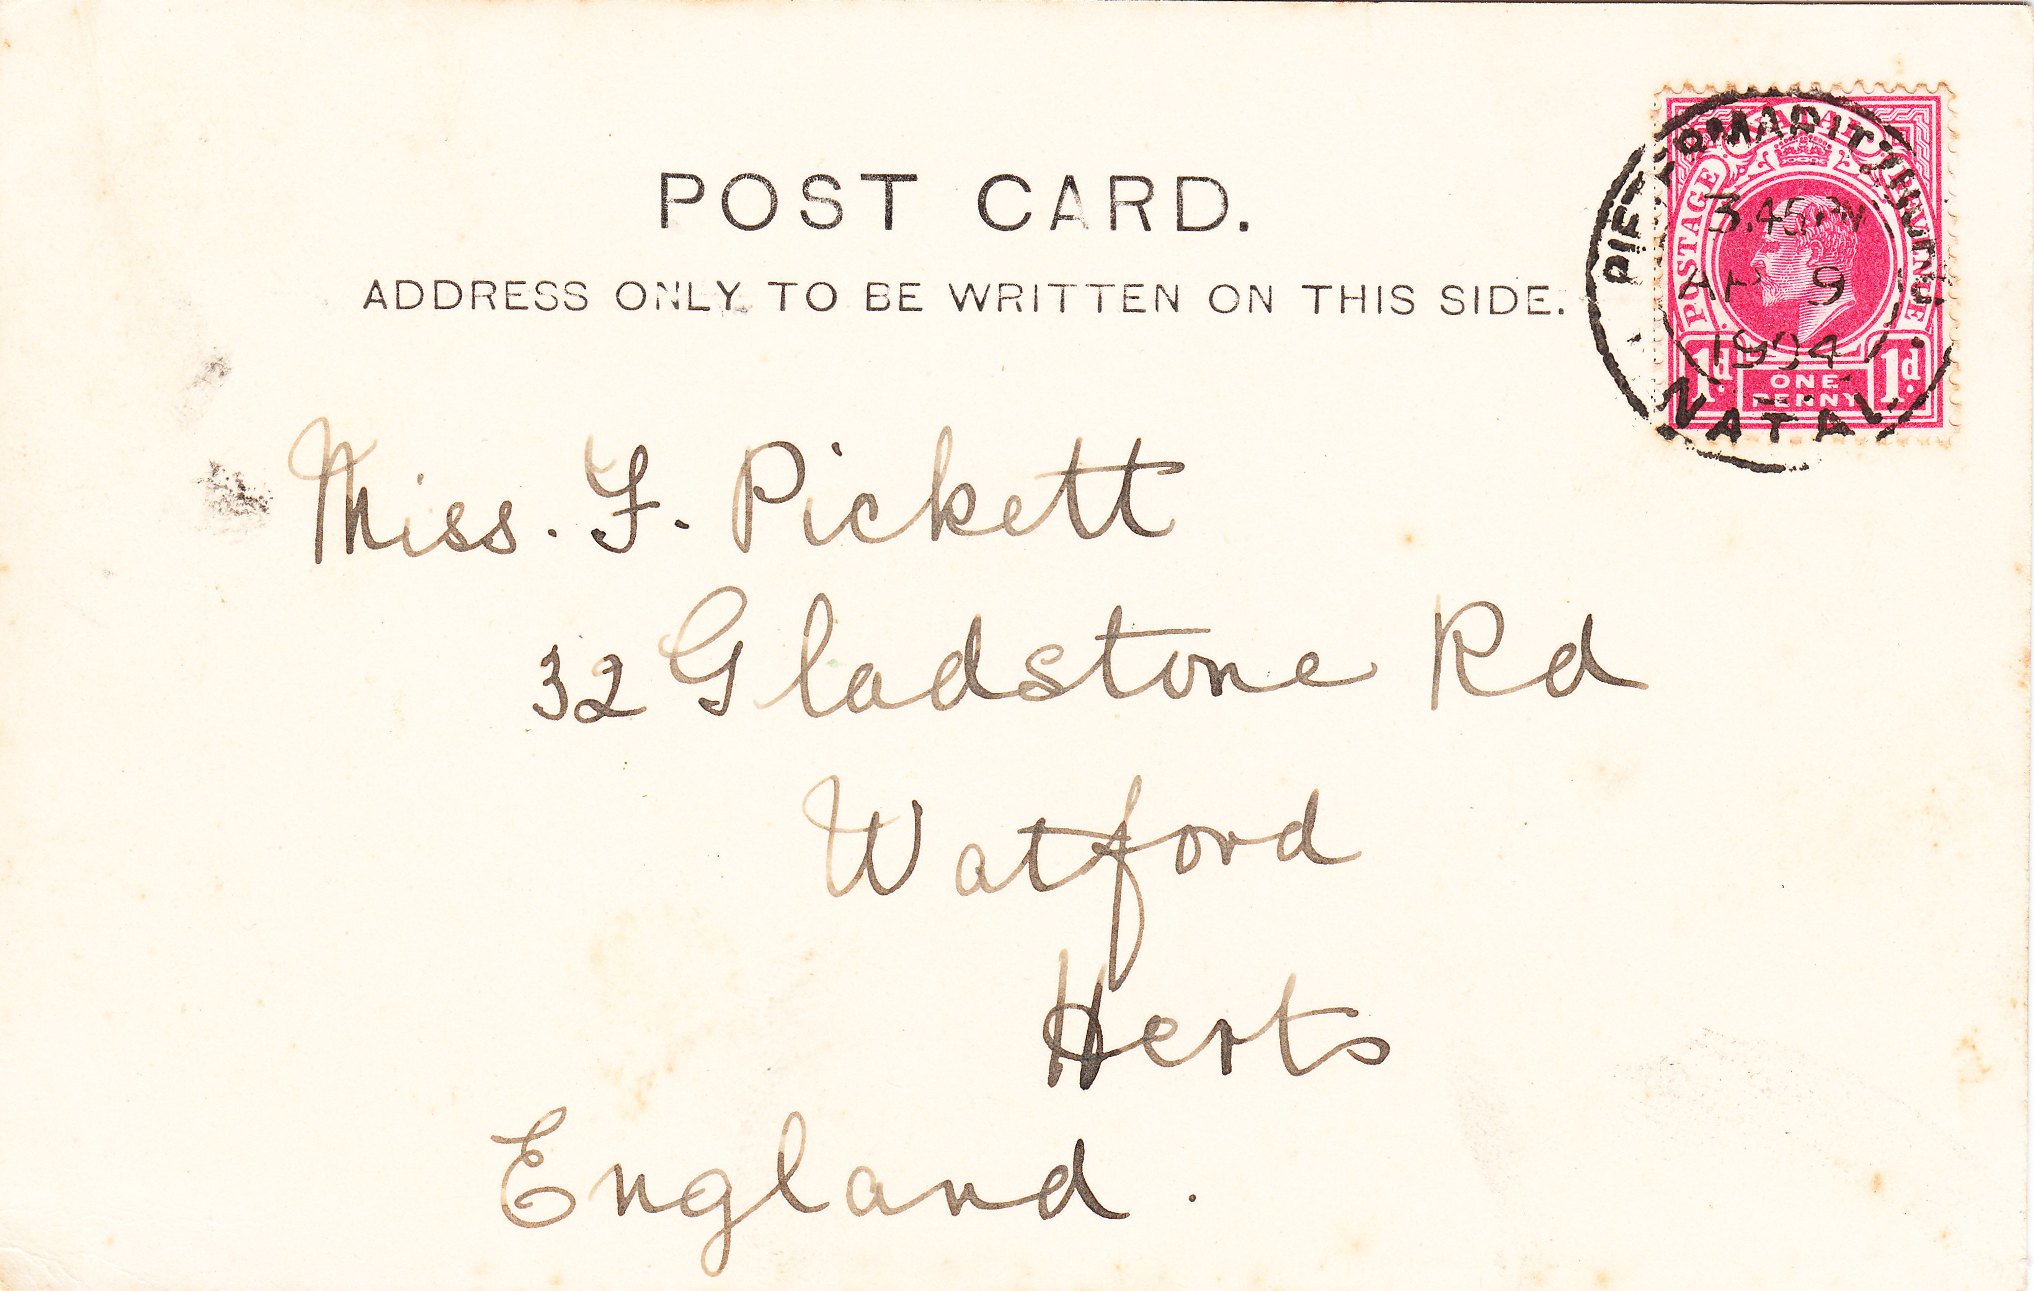 POST CARD.
ADDRESS ONLY TO BE WRITTEN ON THIS SIDE.
NATAL
POSTAGE REVENUE
1d 1d
ONE
PENNY
PIETERMARITZBURG
3.45 PM
AP 9
1904
NATAL
Miss. F. Pickett
32 Gladstone Rd
Watford
Herts
England.